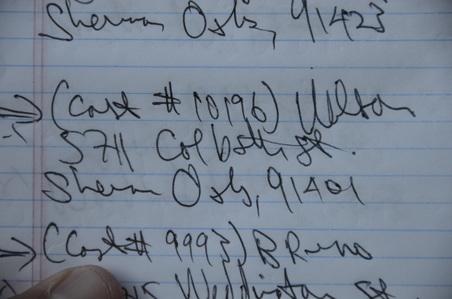 Sherman Oaks, 91423
(Cust # 10196) Nelson
5711 Colbath st.
Sherman Oaks, 91401
(Cust # 9993) BReno
Wellington st